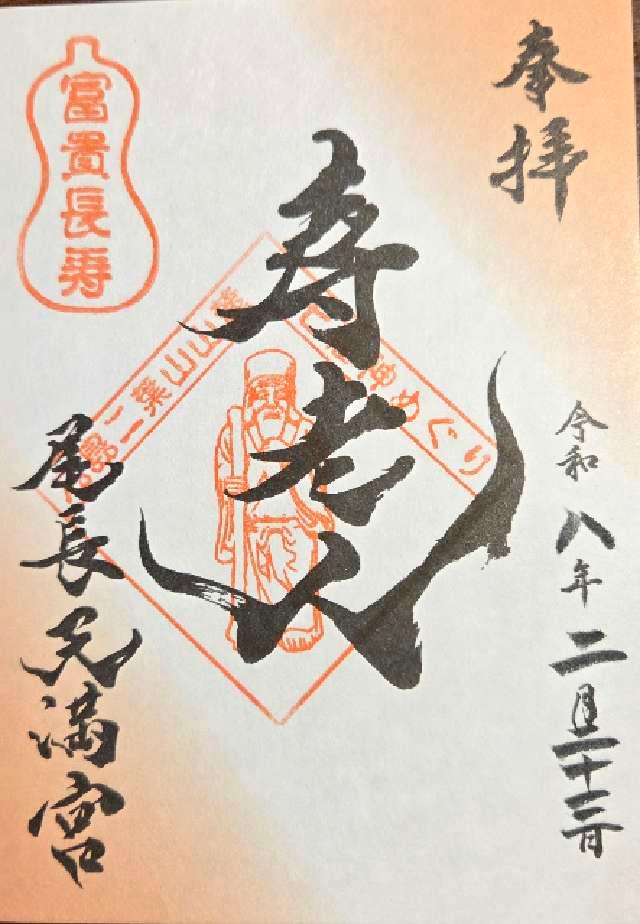 奉拝
寿老人
富貴長寿
二葉山山麓
神めぐり
令和八年二月二十三日
尾長天満宮